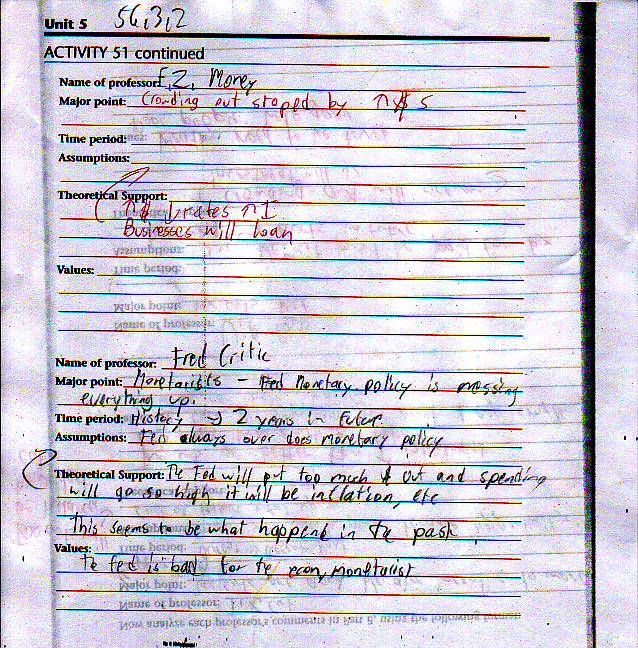 Unit 5 56,3,2
ACTIVITY 51 continued
Name of professor: E.Z. Money
Major point: Crowding out stoped by ↑$ S
Time period:
Assumptions:
Theoretical Support:
↑$ ↓rates ↑I
Businesses will loan
Values:
Name of professor: Fred Critic
Major point: Monetarists - Fed Monetary policy is messing
everything up.
Time period: History → 2 years in future
Assumptions: Fed always over does monetary policy
Theoretical Support: Te Fed will put too much $ out and spending
will go so high it will be inflation, etc
This seems to be what happend in te past
Values:
te fed is bad for te econ, monetarist